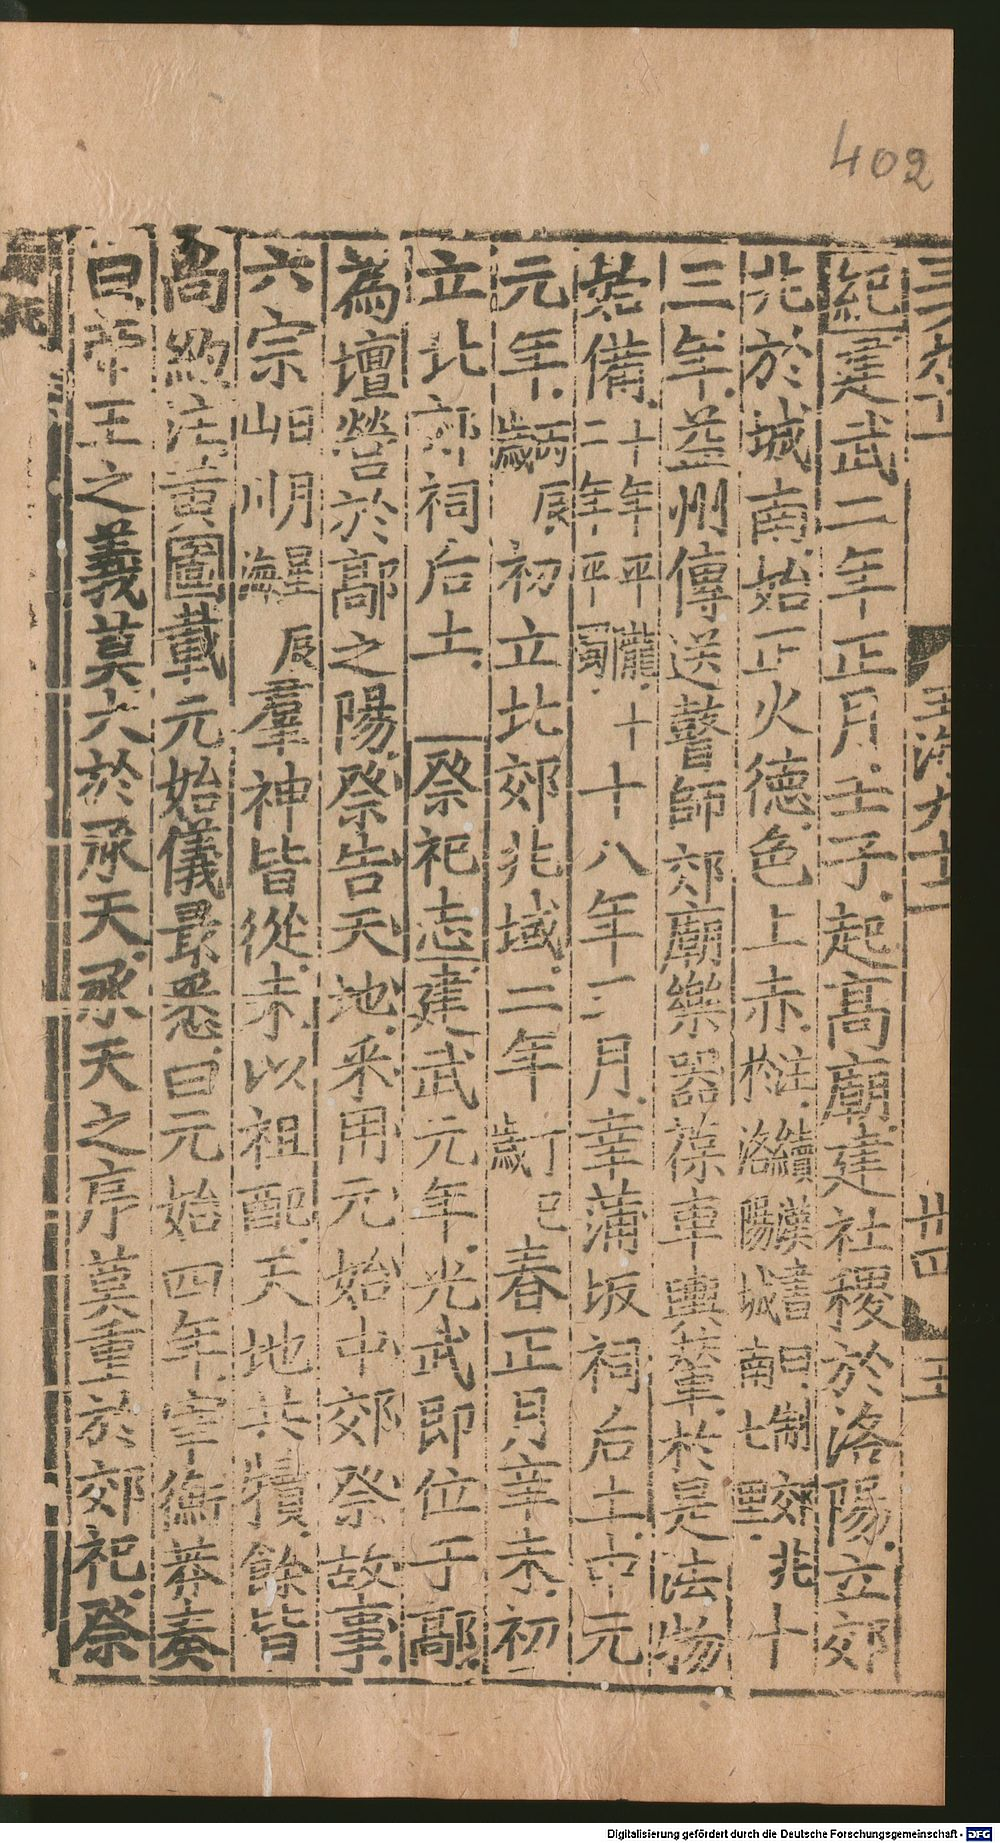 402
玉海九十
廿四
紀建武二年正月壬子起高廟建社稷於洛陽立郊
兆於城南始正火德色上赤注續漢書曰制郊兆十於洛陽城南七里
三年益州傳送瞽師郊廟樂器葆車輿輦於是法物
始備十年平隴十二年平蜀十八年三月幸蒲坂祠后土中元
元年歲丙辰初立北郊兆域二年歲丁巳春正月辛未初
立北郊祠后土 祭祀志建武元年光武即位于鄗
為壇營於鄗之陽祭告天地采用元始中郊祭故事
六宗日明星辰山川海羣神皆從未以祖配天地共犢餘皆
尚約注黃圖載元始儀最悉曰元始四年宰衡莽奏
曰帝王之義莫大於承天承天之序莫重於郊祀祭
Digitalisierung gefördert durch die Deutsche Forschungsgemeinschaft - DFG